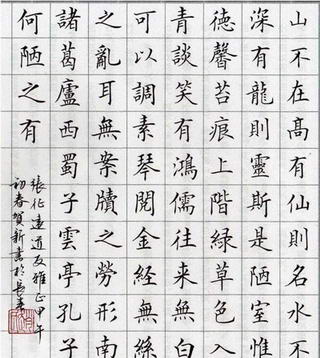 山不在高有仙則名水不
深有龍則靈斯是陋室惟
德馨苔痕上階綠草色入
青談笑有鴻儒往來無白
可以調素琴閱金經無絲
之亂耳無案牘之勞形南
諸葛廬西蜀子雲亭孔子
何陋之有
張征遠道友雅正甲午
初春賀新書於長